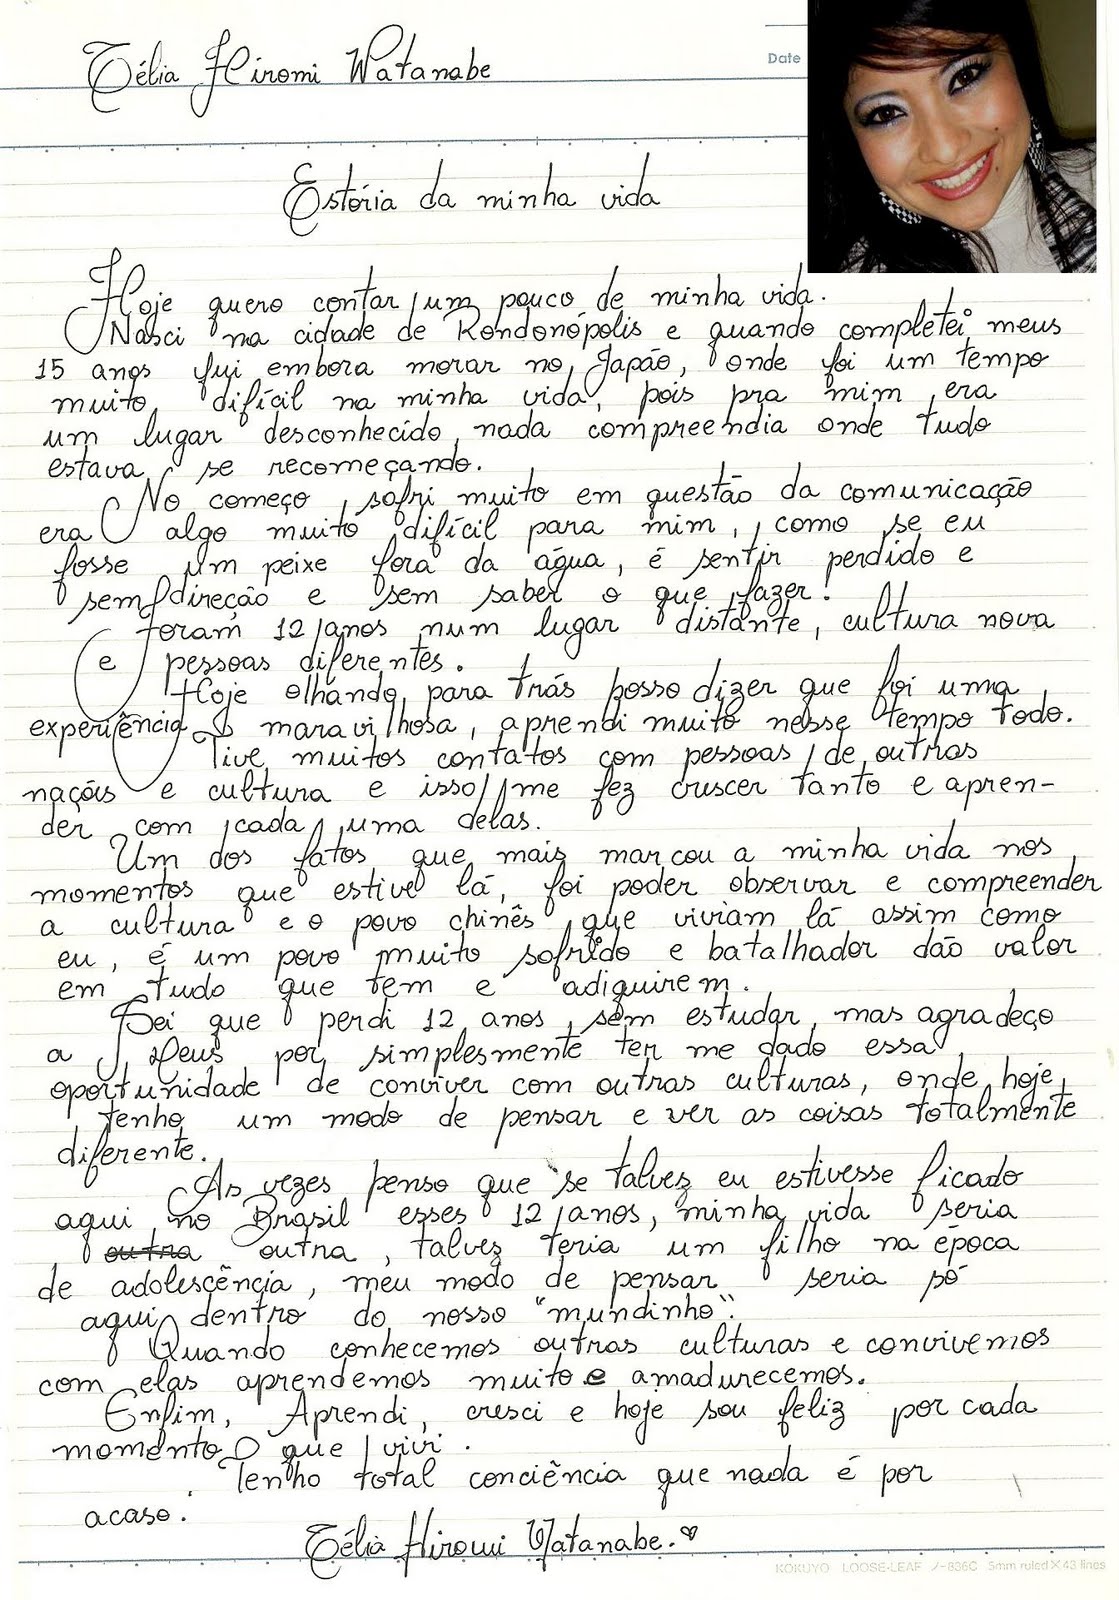 Date
Célia Hiromi Watanabe
Estória da minha vida
Hoje quero contar um pouco de minha vida.
Nasci na cidade de Rondonópolis e quando completei meus
15 anos fui embora morar no Japão, onde foi um tempo
muito difícil na minha vida, pois pra mim era
um lugar desconhecido, nada compreendia onde tudo
estava se recomeçando.
No começo sofri muito em questão da comunicação
era algo muito difícil para mim, como se eu
fosse um peixe fora da água, é sentir perdido e
sem direção e sem saber o que fazer!
Foram 12 anos num lugar distante, cultura nova
e pessoas diferentes.
Hoje olhando para trás posso dizer que foi uma
experiência maravilhosa, aprendi muito nesse tempo todo.
Tive muitos contatos com pessoas de outras
naçõis e cultura e isso me fez crescer tanto e apren-
der com cada uma delas.
Um dos fatos que mais marcou a minha vida nos
momentos que estive lá, foi poder observar e compreender
a cultura e o povo chinês que viviam lá assim como
eu, é um povo muito sofrido e batalhador dão valor
em tudo que tem e adiquirem.
Sei que perdi 12 anos sem estudar, mas agradeço
a Deus por simplesmente ter me dado essa
oportunidade de conviver com outras culturas, onde hoje
tenho um modo de pensar e ver as coisas totalmente
diferente.
As vezes penso que se talvez eu estivesse ficado
aqui no Brasil esses 12 anos, minha vida seria
outra outra, talvez teria um filho na época
de adolescência, meu modo de pensar seria só
aqui dentro do nosso "mundinho".
Quando conhecemos outras culturas e convivemos
com elas aprendemos muito e amadurecemos.
Enfim, Aprendi, cresci e hoje sou feliz por cada
momento que vivi.
Tenho total conciência que nada é por
acaso.
Célia Hiromi Watanabe.
KOKUYO LOOSE-LEAF ノ-836C 5mm ruled×43 lines